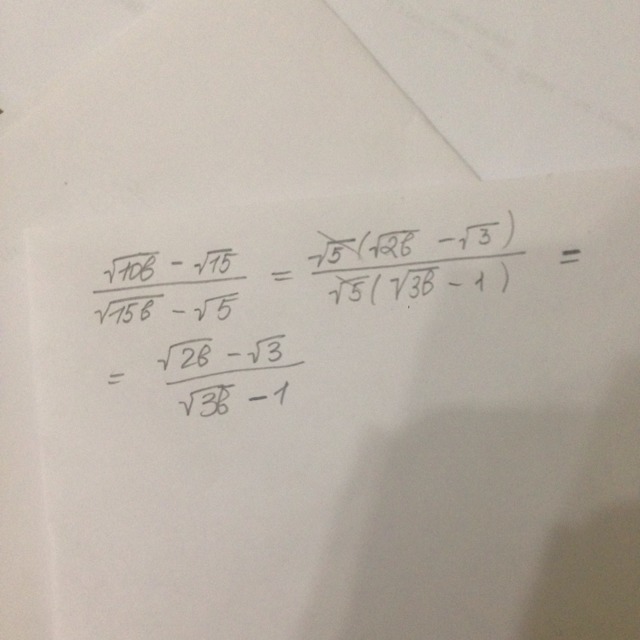 (√(10b) − √15)/(√(15b) − √5) = (√5(√(2b) − √3))/(√5(√(3b) − 1)) =
= (√(2b) − √3)/(√(3b) − 1)